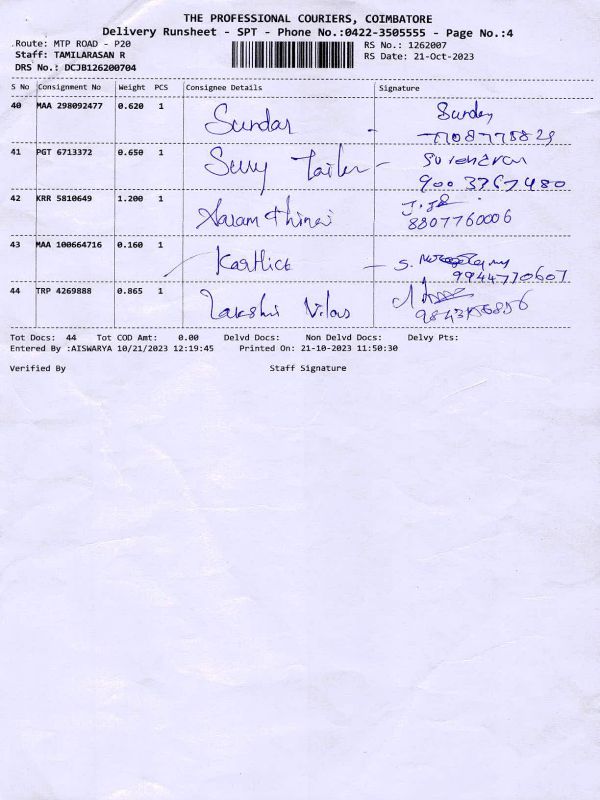 THE PROFESSIONAL COURIERS, COIMBATORE
Delivery Runsheet - SPT - Phone No.:0422-3505555 - Page No.:4
Route: MTP ROAD - P20 RS No.: 1262007
Staff: TAMILARASAN R RS Date: 21-Oct-2023
DRS No.: DCJB126200704
S No Consignment No Weight PCS Consignee Details Signature
40 MAA 298092477 0.620 1 Sundar Sundar
7708775829
41 PGT 6713372 0.650 1 Tailor Surendran
9003367480
42 KRR 5810649 1.200 1
8807760006
43 MAA 100664716 0.160 1 Karthick S.
9944770607
44 TRP 4269888 0.865 1 Lakshmi Vilas
Tot Docs: 44 Tot COD Amt: 0.00 Delvd Docs: Non Delvd Docs: Delvy Pts:
Entered By :AISWARYA 10/21/2023 12:19:45 Printed On: 21-10-2023 11:50:30
Verified By Staff Signature